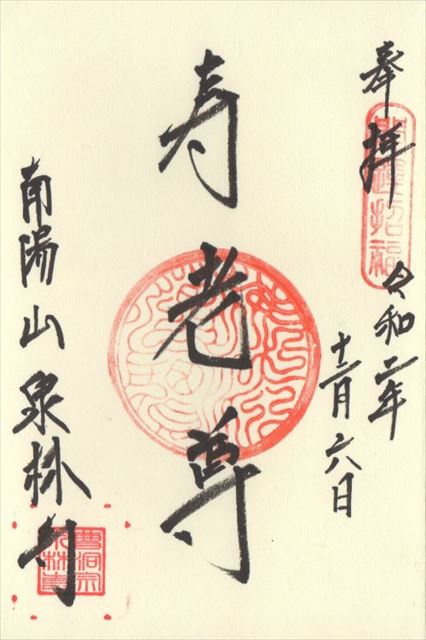 奉拝
開運招福
令和二年
十二月六日
寿老尊
南陽山 泉林寺
曹洞宗
泉林寺